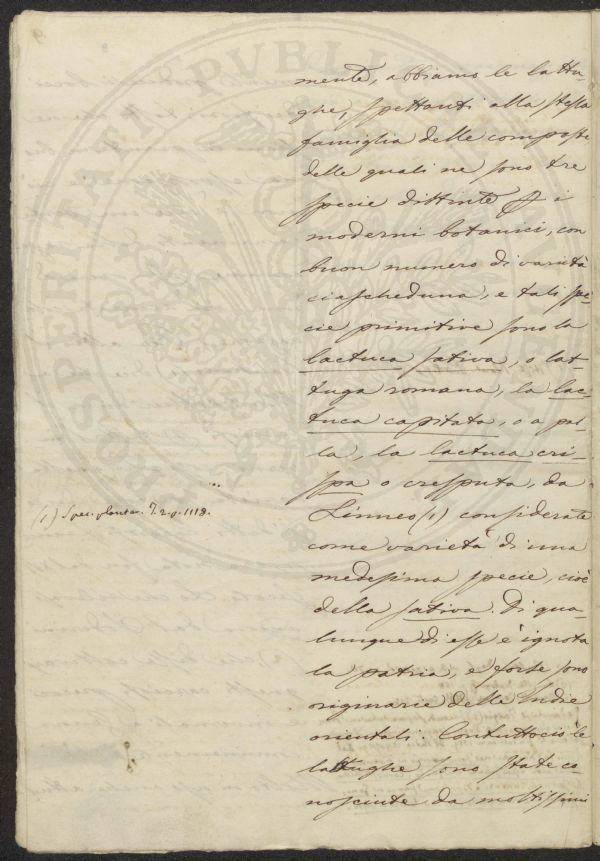 mente, abbiamo le lattu-
ghe, spettanti alla stessa
famiglia delle composte
delle quali ne sono tre
specie distinte i
moderni botanici, con
buon numero di varietà
ciascheduna, e tali spe-
cie primitive sono la
lactuca sativa, o lat-
tuga romana, la lac-
tuca capitata, o a pal-
la, la lactuca cri-
spa o cresputa, da
(1) Spec. plantar. T. 2. p. 1118.
Linneo (1) considerate
come varietà di una
medesima specie, cioè
della sativa. Di qua-
lunque di esse è ignota
la patria, e forse sono
originarie delle Indie
orientali. Contuttociò le
lattughe sono state co-
nosciute da moltissimi
PROSPERITATI PUBLICAE